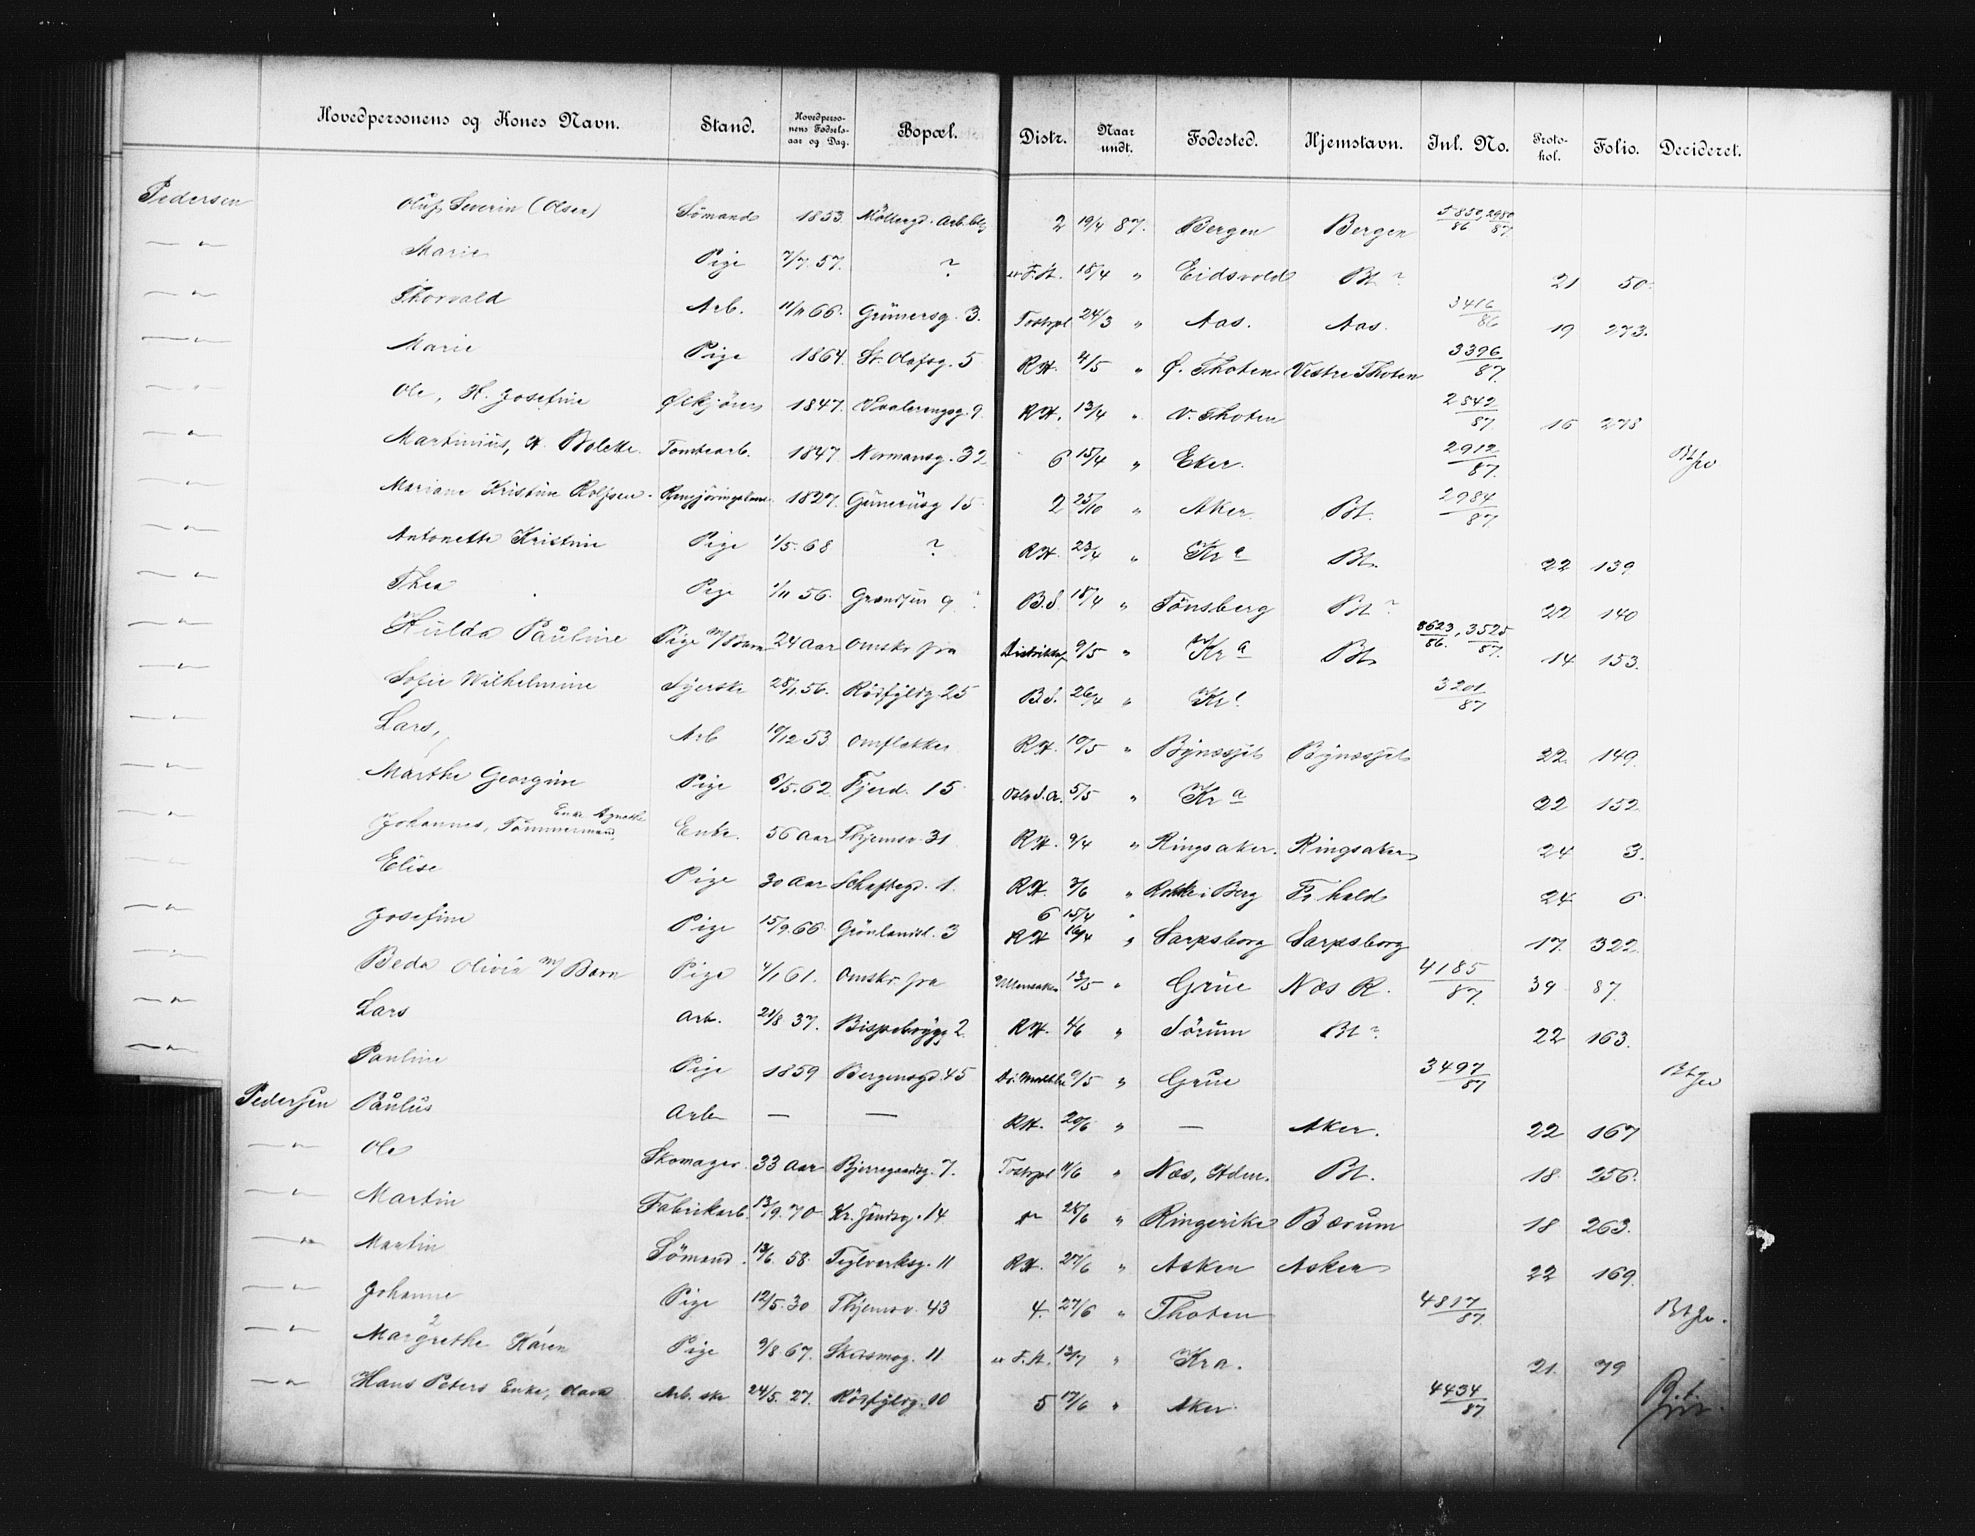 Hovedpersonens og Kones Navn. Stand. Hovedpersonens Fødselsaar og Dag. Bopæl. Distr. Naar undt. Fødested. Hjemstavn. Inl. No. Protokol. Folio. Decideret.
Pedersen Oluf Severin (Olsen) Sömand 1853. Möllergd. Arb. 2 19/4 87. Bergen Bergen 5850/86, 2980/87
—"— Marie Pige 7/7. 57. ? 18/4 " Eidsvold Bt ? 21 50.
—"— Thorvald Arb. 11/11 66. Grünersg. 3. 24/3 " Aas. Aas. 3416/86 19 273.
—"— Marie Pige 1864. St. Olafsg. 5 RH. 4/5 " Ø. Thoten Vestre Thoten 3396/87.
—"— Ole, H. Josefine Ølkjører 1847. Vaalerengsg. 9. RH. 13/4 " V. Thoten 2842/87 15 278
—"— Martinius, H. Bolette. Tomtearb. 1847 Normansg. 32 6 15/4 " Eker. 2912/87.
—"— Mariane Kristine Rolfsen. 1827. Grünersg 15 2 25/10 " Aker Bt. 2984/87
—"— Antonette Kristine Pige 1/5. 68 ? RH. 23/4 " Kra Bt. 22 139
—"— Thea Pige 1/11 56. 9 ? B.S. 18/4 " Tönsberg Bt ? 22 140
—"— Hulda Pauline Pige m/Barn 24 Aar Omskr fra 9/5 " Kra Bt. 8623/86, 3525/87 14 153.
—"— Sofie Wilhelmine Syerske 28/1 56. Rödfyldg. 25 B.S. 26/4 " Kra 3201/87
—"— Lars, Arb 19/12 53 Omflakker RH. 10/5 " Bynæsset Bynæsset 22 149.
—"— Marthe Georgine Pige 6/5. 62 Fjerd. 15 5/5 " Kra 22 152
—"— Johannes, Tømmermand, Enke Agnethe Enke. 56 Aar Thjemsv. 31 RH. 9/4 " Ringsaker. Ringsaker 24 3.
—"— Elise Pige 30 Aar Schaftegd. 1. RH. 3/6 " Rokke i Berg Fr. hald 24 6
—"— Josefine Pige 15/9. 66. Grönlandsl. 3 6 15/4 " RH 16/4 " Sarpsborg Sarpsborg 17. 322
—"— Beda Olivia m/ Barn Pige 4/1 61. Omskr. fra Ullensaker 13/5 " Grue Næs R. 4185/87 39 87.
—"— Lars Arb. 21/8 37. Bispebrygg 2. RH. 4/6 " Sørum Bt ? 22 163.
—"— Pauline Pige 1859 Bergensgd. 45 9/5 " Grue 3497/87
Pedersen Paulus Arb — — RH. 20/6 " — Aker. 22 167
—"— Ole Skomager. 33 Aar Bjerregaardsg. 7. 11/6 " Næs, Hdm. Bt. 18 256.
—"— Martin Fabrikarb. 13/9. 70 14 28/6 " Ringerike Bærum 18 263.
—"— Martin Sömand. 13/6. 58. Teglverksg. 11 RH. 27/6 " Asker Asker 22 169.
—"— Johanne Pige 12/5. 30 Thjemsv. 43 4. 27/6 " Thoten 4817/87.
—"— Margrethe Karen Pige 9/8 67. 11 F.A. 13/7 " Kra. 21. 79
—"— Hans Peters Enke, Olava Arb. ske 24/5. 27. Rödfyldg. 10 5 17/6 " Aker. 4434/87